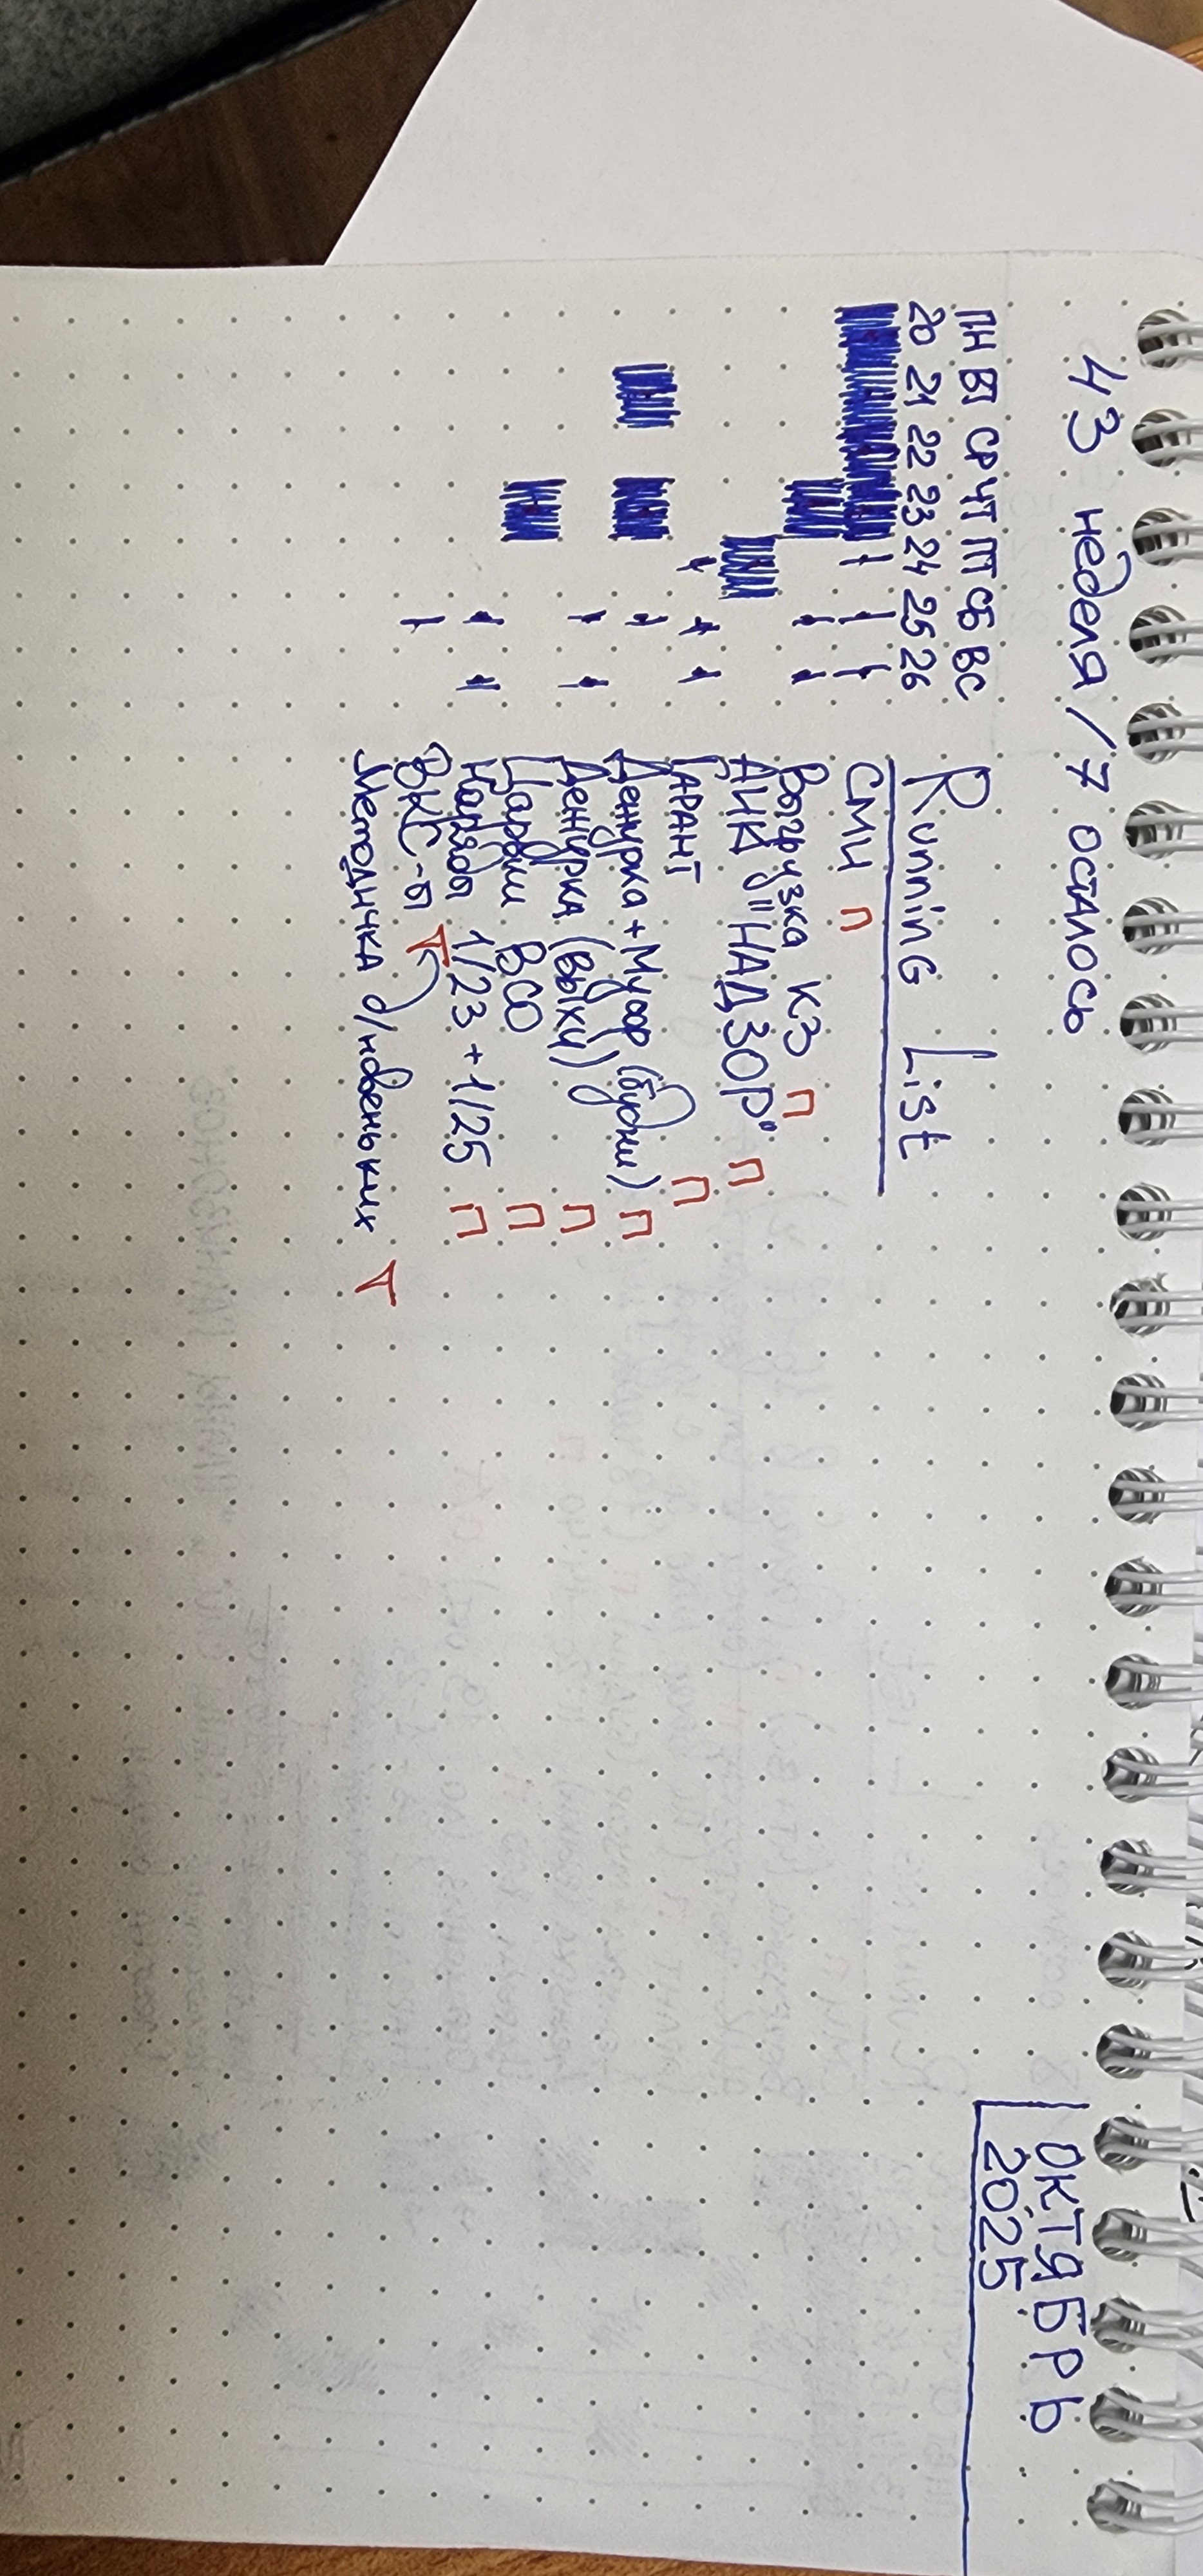 ОКТЯБРЬ
2025
43 неделя / 7 осталось
ПН ВТ СР ЧТ ПТ СБ ВС
20 21 22 23 24 25 26
Running List
СМИ П
Выгрузка КЗ П
АИК "НАДЗОР" П
ГАРАНТ П
Дежурка + Муфр (будни) П
Дежурка (выхи) П
Царфин ВСО П
Наряд 1/23 + 1/25 П
ВКС-п Т
Методичка д/новеньких Т